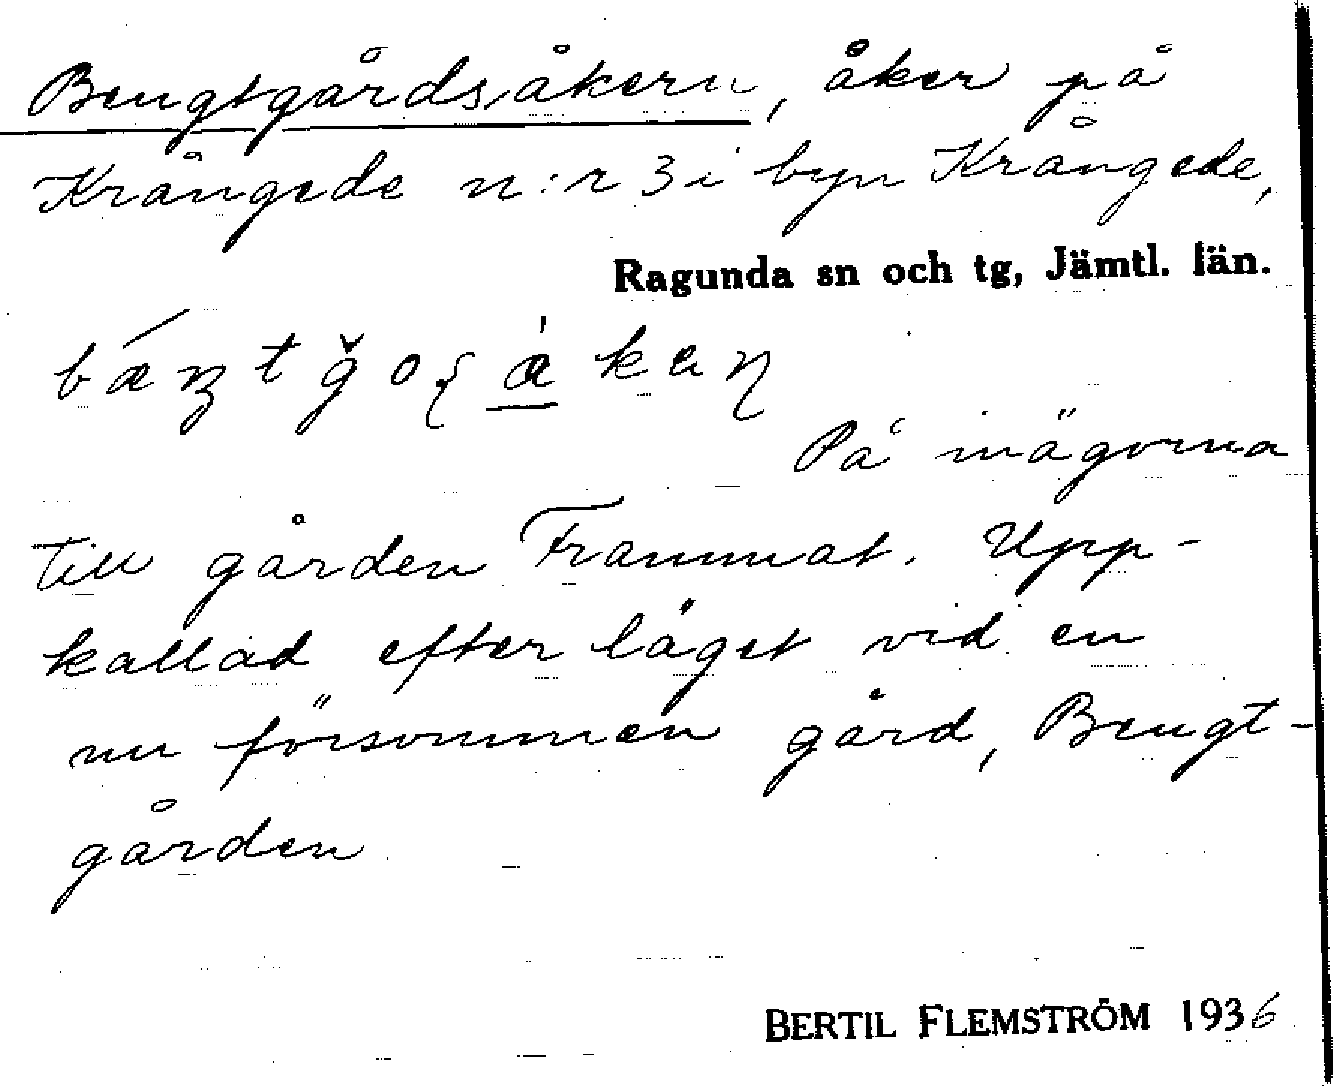 Bengtgårdsåkern, åker på
Krångede n:r 3 i byn Krångede,
Ragunda sn och tg, Jämtl. län.
På inägorna
till gården Frammat. Upp-
kallad efter läget vid en
nu försvunnen gård, Bengt-
gården
BERTIL FLEMSTRÖM 1936